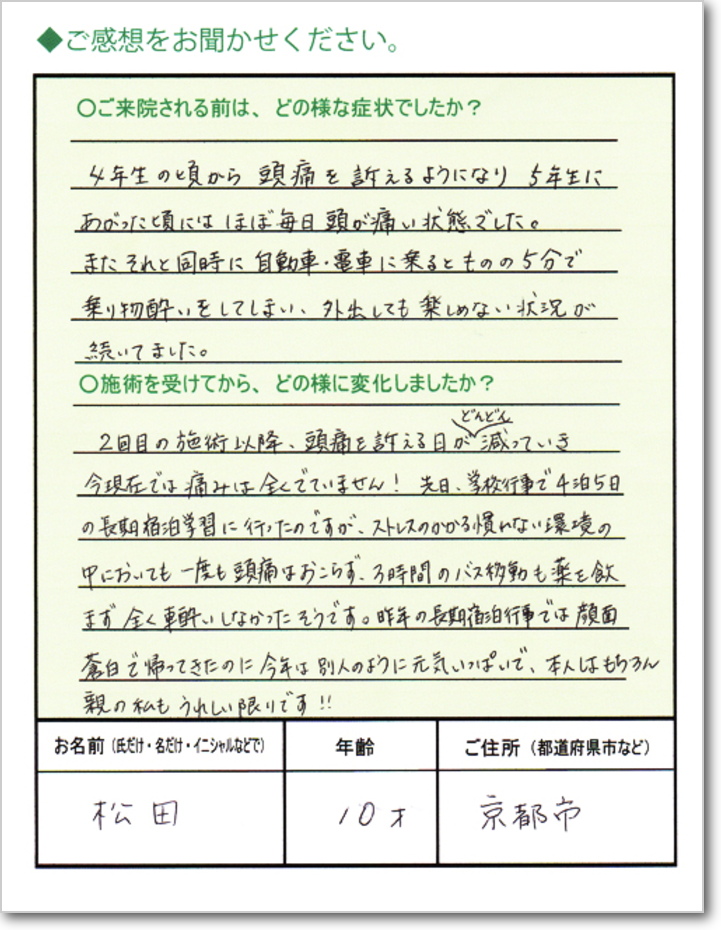 ◆ご感想をお聞かせください。
○ご来院される前は、どの様な症状でしたか？
4年生の頃から 頭痛を訴えるようになり 5年生に
あがった頃には ほぼ毎日頭が痛い状態でした。
またそれと同時に 自動車・電車に乗るとものの5分で
乗り物酔いをしてしまい、外出しても楽しめない状況が
続いてました。
○施術を受けてから、どの様に変化しましたか？
どんどん
2回目の施術以降、頭痛を訴える日が減っていき
今現在では痛みは全くでていません！ 先日、学校行事で4泊5日
の長期宿泊学習に行ったのですが、ストレスのかかる慣れない環境の
中においても一度も頭痛はおこらず、3時間のバス移動も薬を飲
まず全く車酔いしなかったそうです。昨年の長期宿泊行事では顔面
蒼白で帰ってきたのに今年は別人のように元気いっぱいで、本人はもちろん
親の私もうれしい限りです!!
お名前（氏だけ・名だけ・イニシャルなどで） 年齢 ご住所（都道府県市など）
松田 10才 京都市